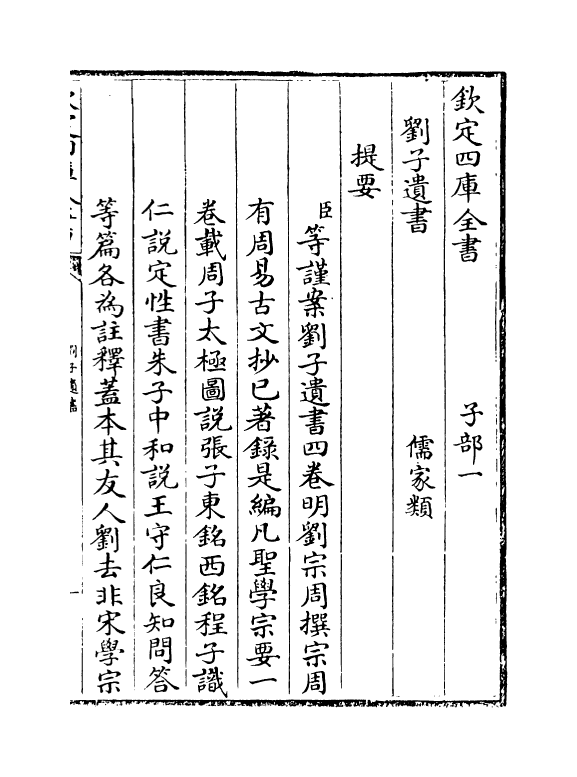 欽定四庫全書　子部一
劉子遺書　儒家類
提要
臣等謹案劉子遺書四卷明劉宗周撰宗周
有周易古文抄已著錄是編凡聖學宗要一
卷載周子太極圖說張子東銘西銘程子識
仁說定性書朱子中和說王守仁良知問答
等篇各為註釋蓋本其友人劉去非宋學宗